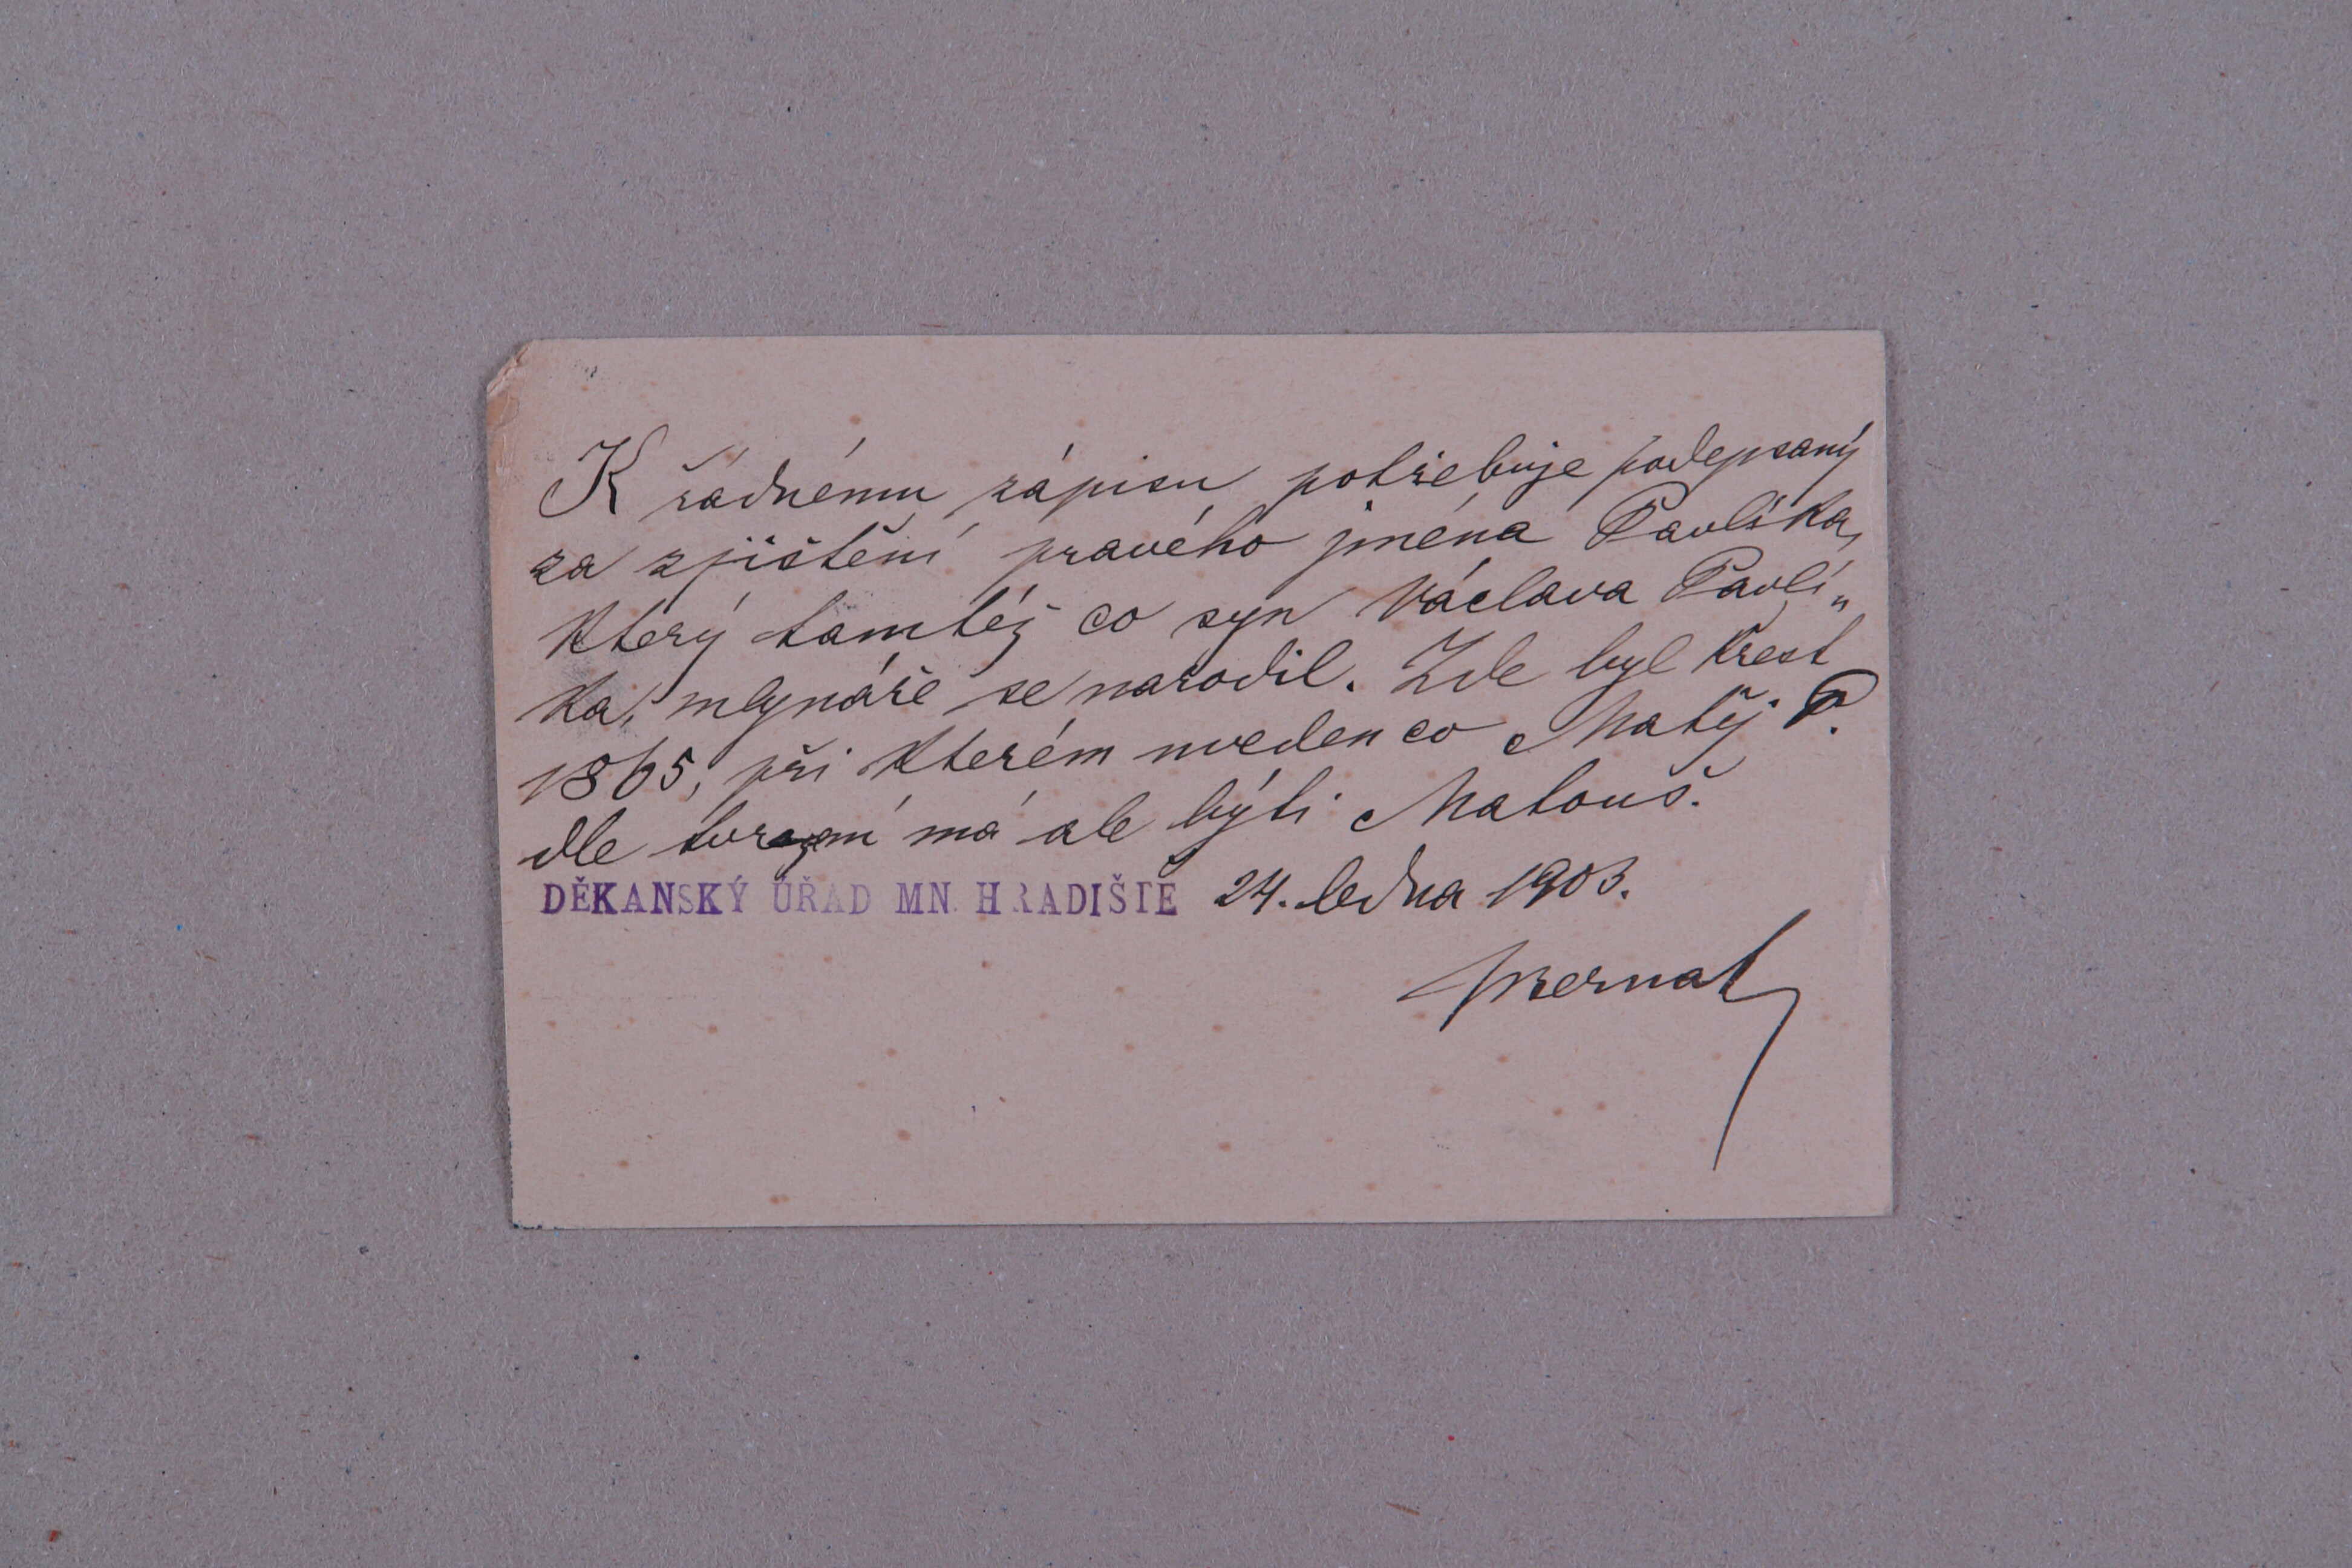 K řádnému zápisu potřebuje podepsaný
za zjištění pravého jména Pavlíka,
který tamtéž co syn Václava Pavlí„
ka, mlynáře se narodil. Zde byl křest
1865, při kterém uveden co Matěj P.
dle tvrzení má ale býti Matouš.
DĚKANSKÝ ÚŘAD MN. HRADIŠTĚ 24. ledna 1903.
Bernat